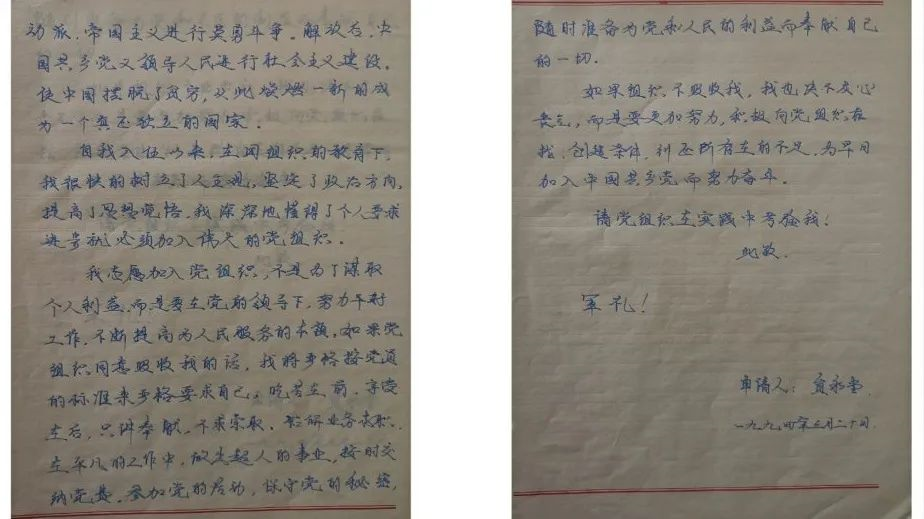 动派、帝国主义进行英勇斗争。解放后，中
国共产党又领导人民进行社会主义建设。
使中国摆脱了贫穷，从此焕然一新的成
为一个真正独立的国家。
自我入伍以来，在团组织的教育下，
我很快的树立了人生观，坚定了政治方向，
提高了思想觉悟。我深深地懂得了个人要求
进步就必须加入伟大的党组织。
我志愿加入党组织，不是为了谋取
个人利益，而是要在党的领导下，努力干好
工作，不断提高为人民服务的本领。如果党
组织同意吸收我的话，我将严格按党员
的标准来严格要求自己。吃苦在前，享受
在后，只讲奉献，不求索取。钻研业务
在平凡的工作中，做出超人的事业，按时交
纳党费，参加党的活动，保守党的秘密，
随时准备为党和人民的利益而奉献自己
的一切。
如果组织不吸收我，我也决不灰心
丧气，而是要更加努力，积极向党组织靠
拢，创造条件，纠正所存在的不足，为早日
加入中国共产党而努力奋斗。
请党组织在实践中考验我！
此致
军礼！
申请人：
一九九四年三月二十日